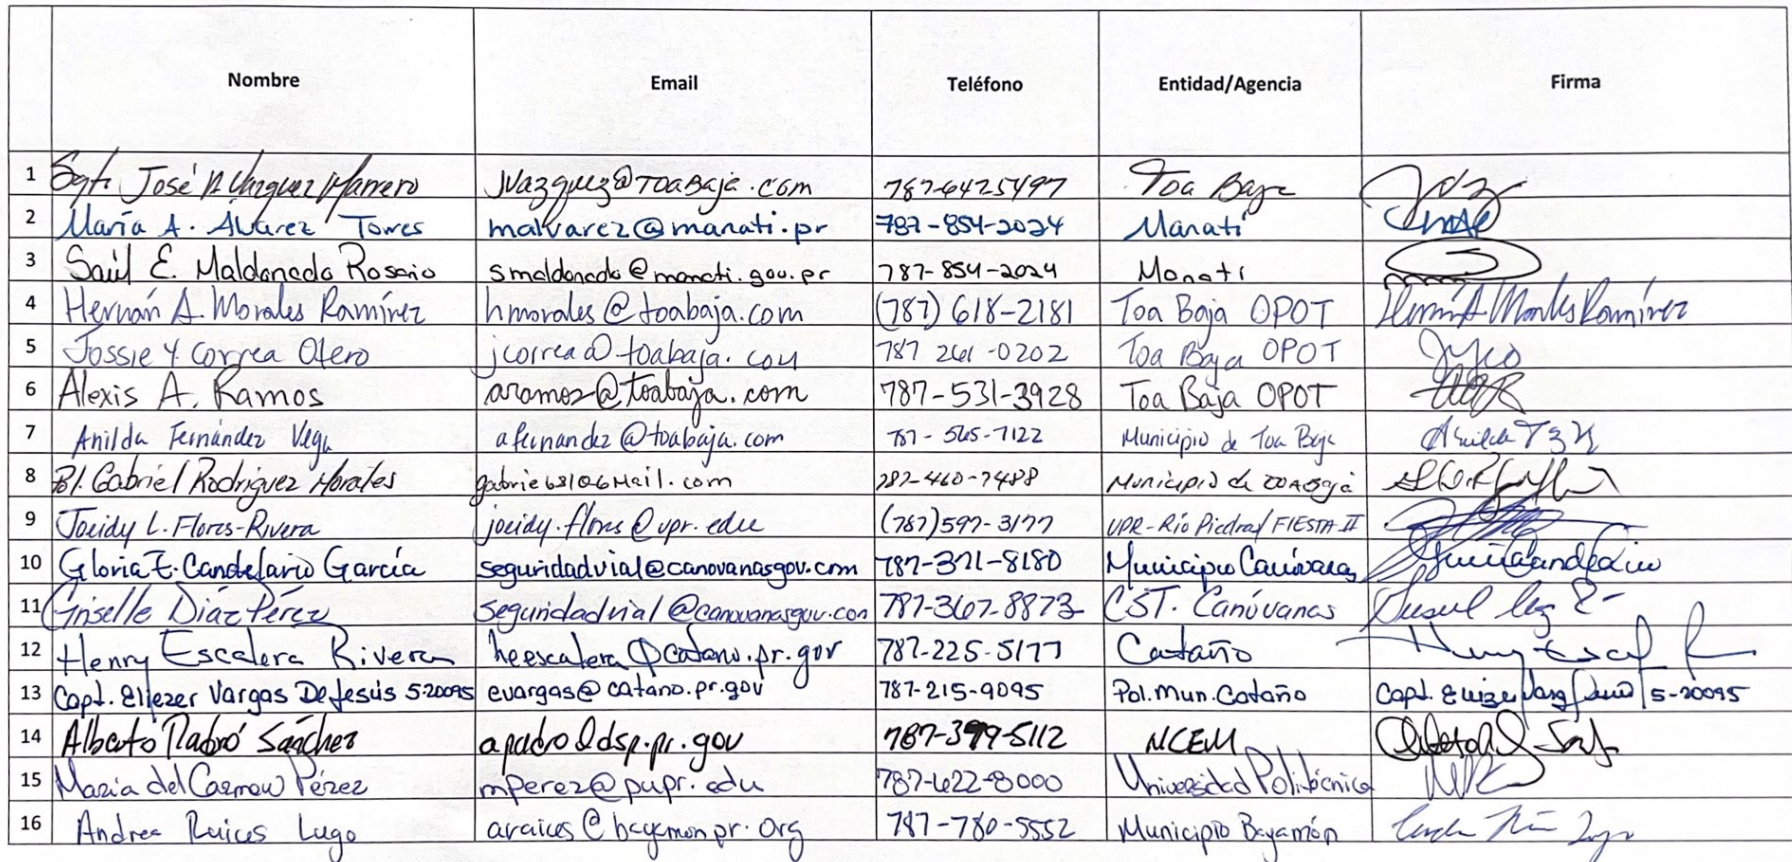 Nombre Email Teléfono Entidad/Agencia Firma
1 Sgto. José A Vázquez Marrero jvazquez@toabaja.com 787-6425497 Toa Baja
2 María A. Álvarez Torres malvarez@manati.pr 787-854-2024 Manatí
3 Saúl E. Maldonado Rosario smaldonado@manati.gov.pr 787-854-2024 Manatí
4 Hernán A. Morales Ramírez hmorales@toabaja.com (787) 618-2181 Toa Baja OPOT Hernán A Morales Ramírez
5 Jossie Y. Correa Otero jcorrea@toabaja.com 787 261-0202 Toa Baja OPOT
6 Alexis A. Ramos aramos@toabaja.com 787-531-3928 Toa Baja OPOT
7 Anilda Fernández Vega afernandez@toabaja.com 787-565-7122 Municipio de Toa Baja
8 Gabriel Rodriguez Morales 787-460-7488 Municipio de Toa Baja
9 Joeidy L. Flores-Rivera joeidy.flores@upr.edu (787)597-3177 UPR-Río Piedras/FIESTA II
10 Gloria E. Candelario García seguridadvial@canovanasgov.com 787-371-8180 Municipio Canóvanas
11 Griselle Díaz Pérez seguridadvial@canovanasgov.com 787-367-8873 CST. Canóvanas
12 Henry Escalera Rivera heescalera@catano.pr.gov 787-225-5177 Cataño
13 Capt. Eliezer Vargas DeJesús 5-20095 evargas@catano.pr.gov 787-215-9095 Pol. Mun. Cataño Capt. 5-20095
14 Alberto Padró Sánchez apadro@dsp.pr.gov 787-399-5112 NCEM
15 María del Carmen Pérez mperez@pupr.edu 787-622-8000 Universidad Politécnica
16 Andrea Raíces Lugo araices@bayamonpr.org 787-780-5552 Municipio Bayamón